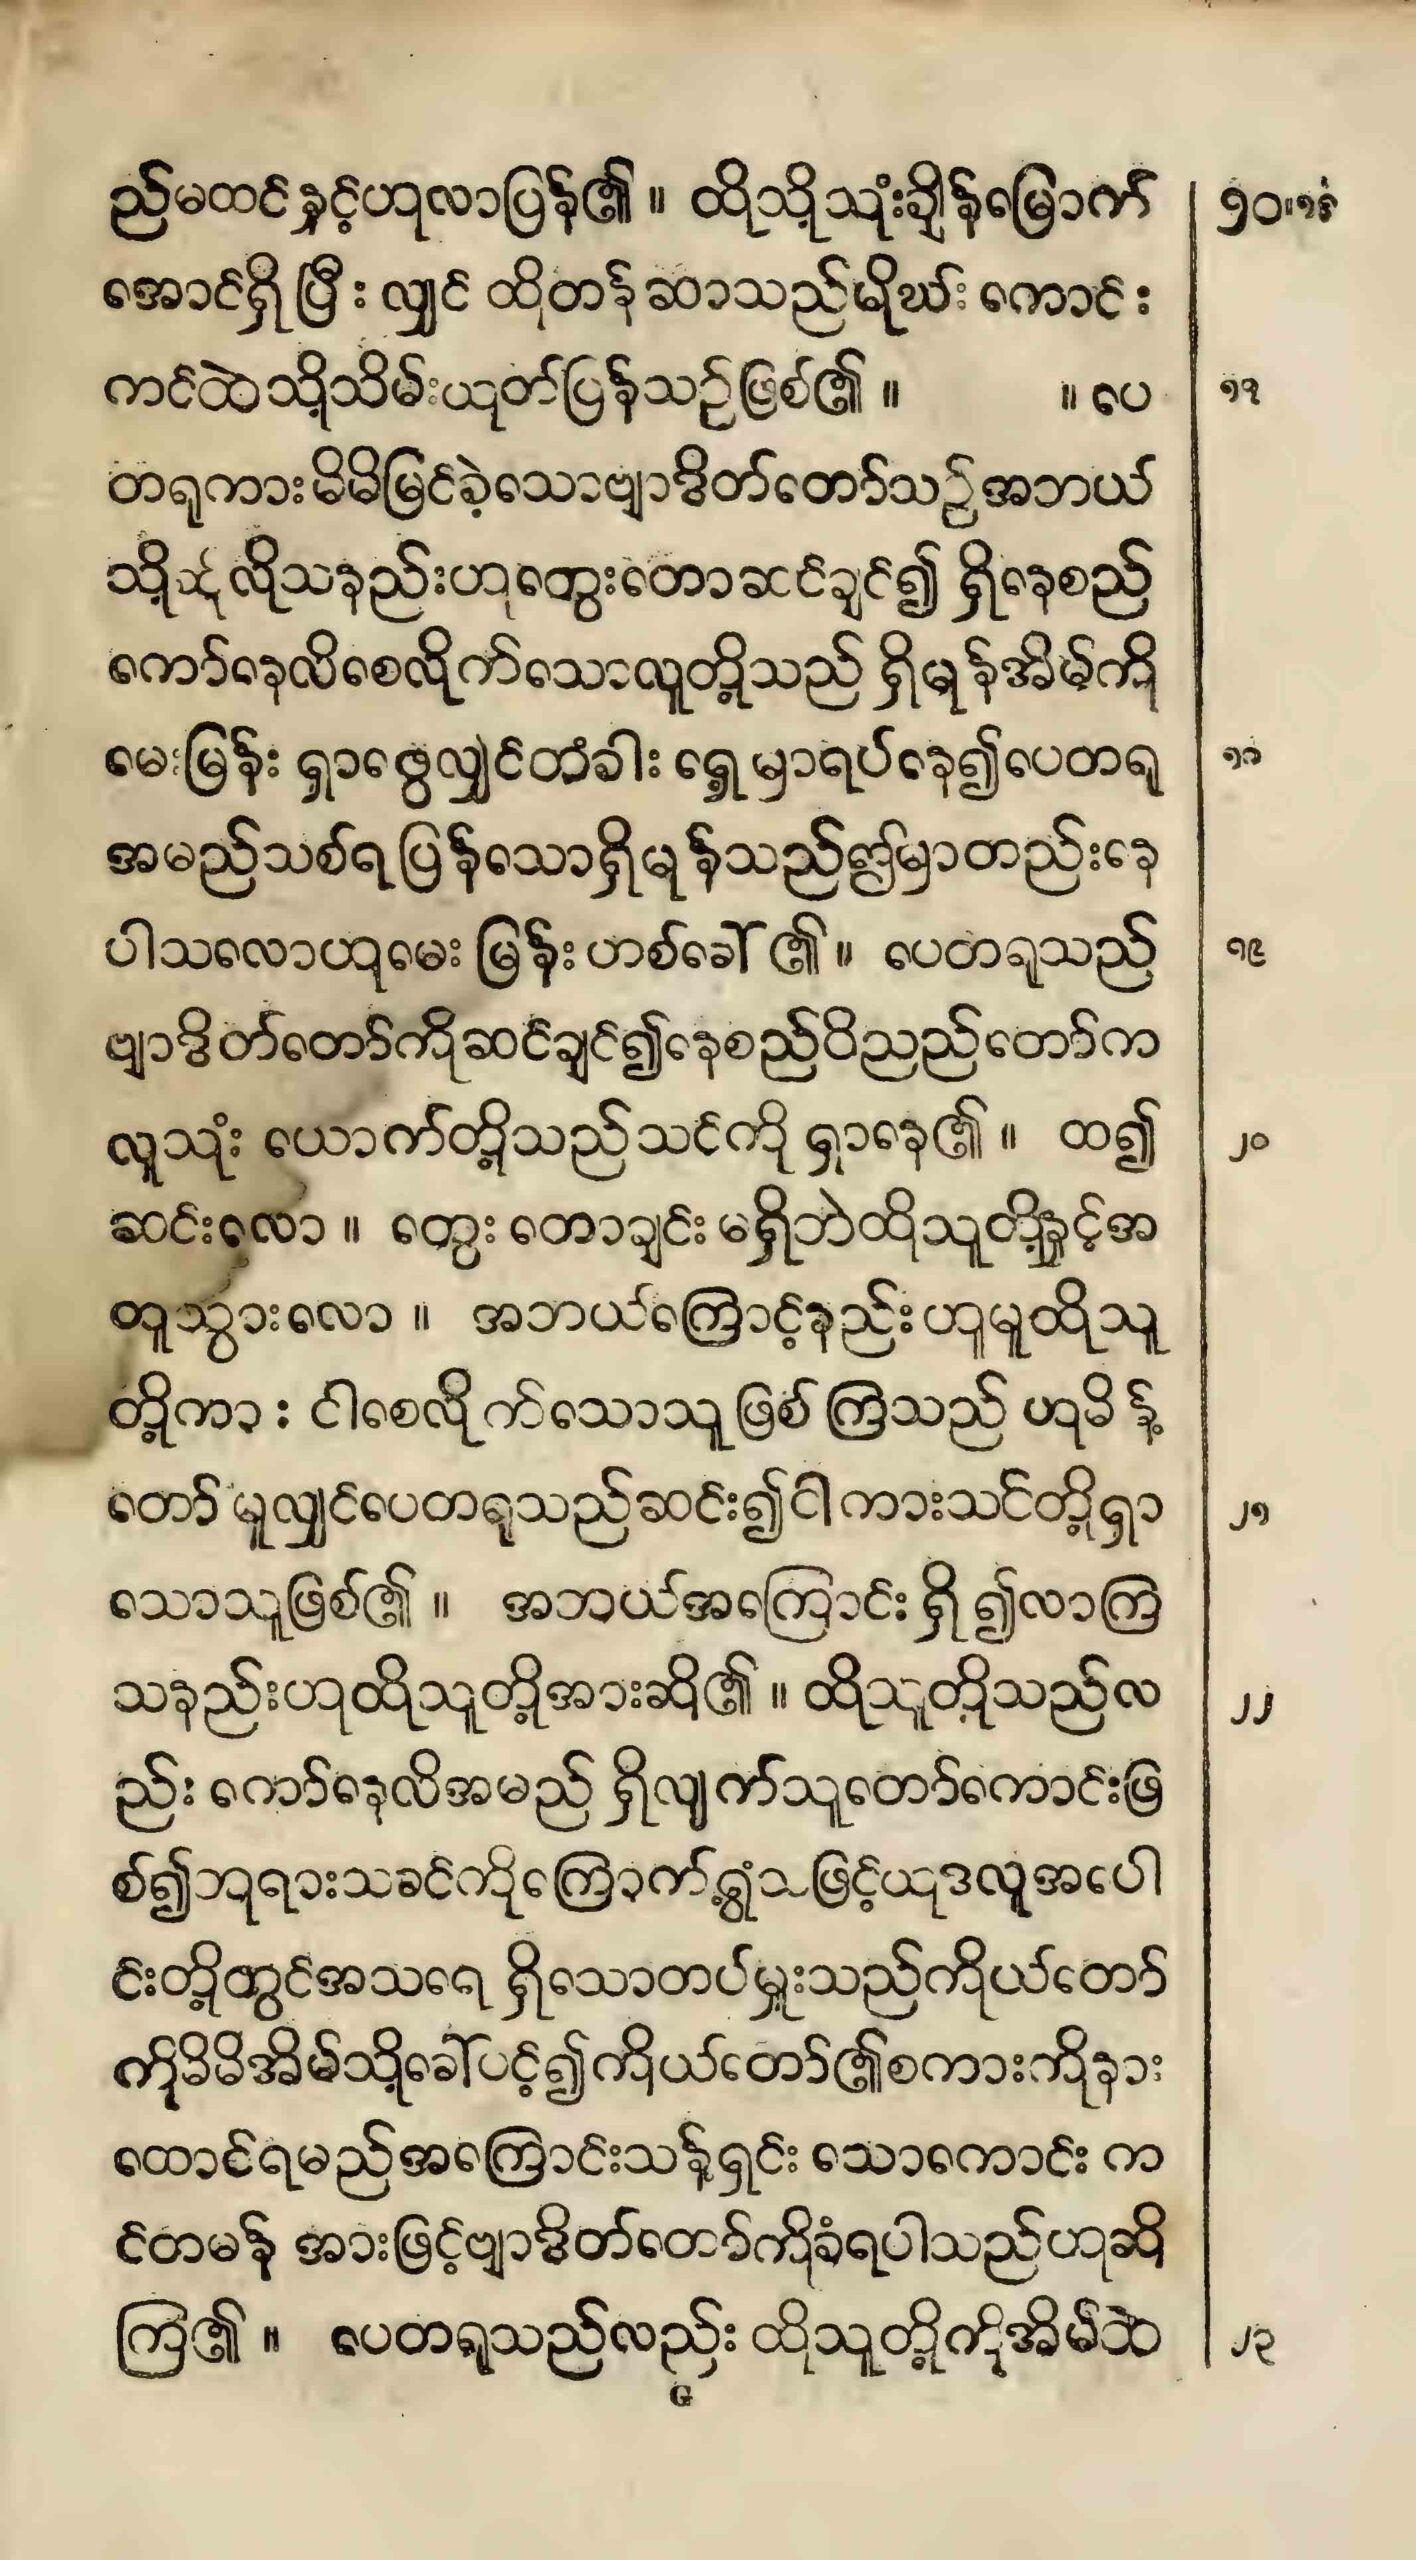 ည်မထင်နှင့်ဟုလာပြန်၏။ ထိုသို့သုံးချိန်မြောက် ၁၀။၁၆
အောင်ရှိပြီး လျှင် ထိုတန်ဆာသည်မိုဃ်းကောင်း
ကင်ထဲသို့သိမ်းယုတ်ပြန်သဉ်ဖြစ်၏။ ။ပေ ၁၇
တရုကားမိမိမြင်ခဲ့သောဗျာဒိတ်တော်သဉ်အဘယ်
သို့ဆုံလိုသနည်းဟုတွေးတောဆင်ချင်၍ ရှိနေစည်
ကော်နေလိစေလိုက်သောလူတို့သည် ရှိမုန်အိမ်ကို
မေးမြန်း ရှာဖွေလျှင်တံခါး ရှေ့မှာရပ်နေ၍ပေတရု ၁၈
အမည်သစ်ရပြန်သောရှိမုန်သည်ဤမှာတည်းနေ
ပါသလောဟုမေးမြန်း ဟစ်ခေါ်၏။ ပေတရုသည် ၁၉
ဗျာဒိတ်တော်ကိုဆင်ချင်၍နေစည်ဝိညည်တော်က
လူသုံး ယောက်တို့သည်သင်ကို ရှာနေ၏။ ထ၍ ၂၀
ဆင်းလော။ တွေး တောချင်း မရှိဘဲထိုသူတို့နှင့်အ
တူသွားလော။ အဘယ်ကြောင့်နည်းဟူမူထိုသူ
တို့ကား ငါစေလိုက်သောသူဖြစ်ကြသည် ဟုမိန့်
တော်မူလျှင်ပေတရုသည်ဆင်း၍ငါကားသင်တို့ရှာ ၂၁
သောသူဖြစ်၏။ အဘယ်အကြောင်း ရှိ၍လာကြ
သနည်းဟုထိုသူတို့အားဆို၏။ထိုသူတို့သည်လ ၂၂
ည်း ကော်နေလိအမည် ရှိလျက်သူတော်ကောင်းဖြ
စ်၍ဘုရားသခင်ကိုကြောက်ရွံ့သဖြင့်ယုဒလူအပေါ
င်းတို့တွင်အသရေ ရှိသောတပ်မှူးသည်ကိုယ်တော်
ကိုမိမိအိမ်သို့ခေါ်ပင့်၍ကိုယ်တော်၏စကားကိုနား
ထောင်ရမည်အကြောင်းသန့်ရှင်း သောကောင်း က
င်တမန် အားဖြင့်ဗျာဒိတ်တော်ကိုခံရပါသည်ဟုဆို
ကြ၏။ ပေတရုသည်လည်း ထိုသူတို့ကိုအိမ်ထဲ ၂၃
G